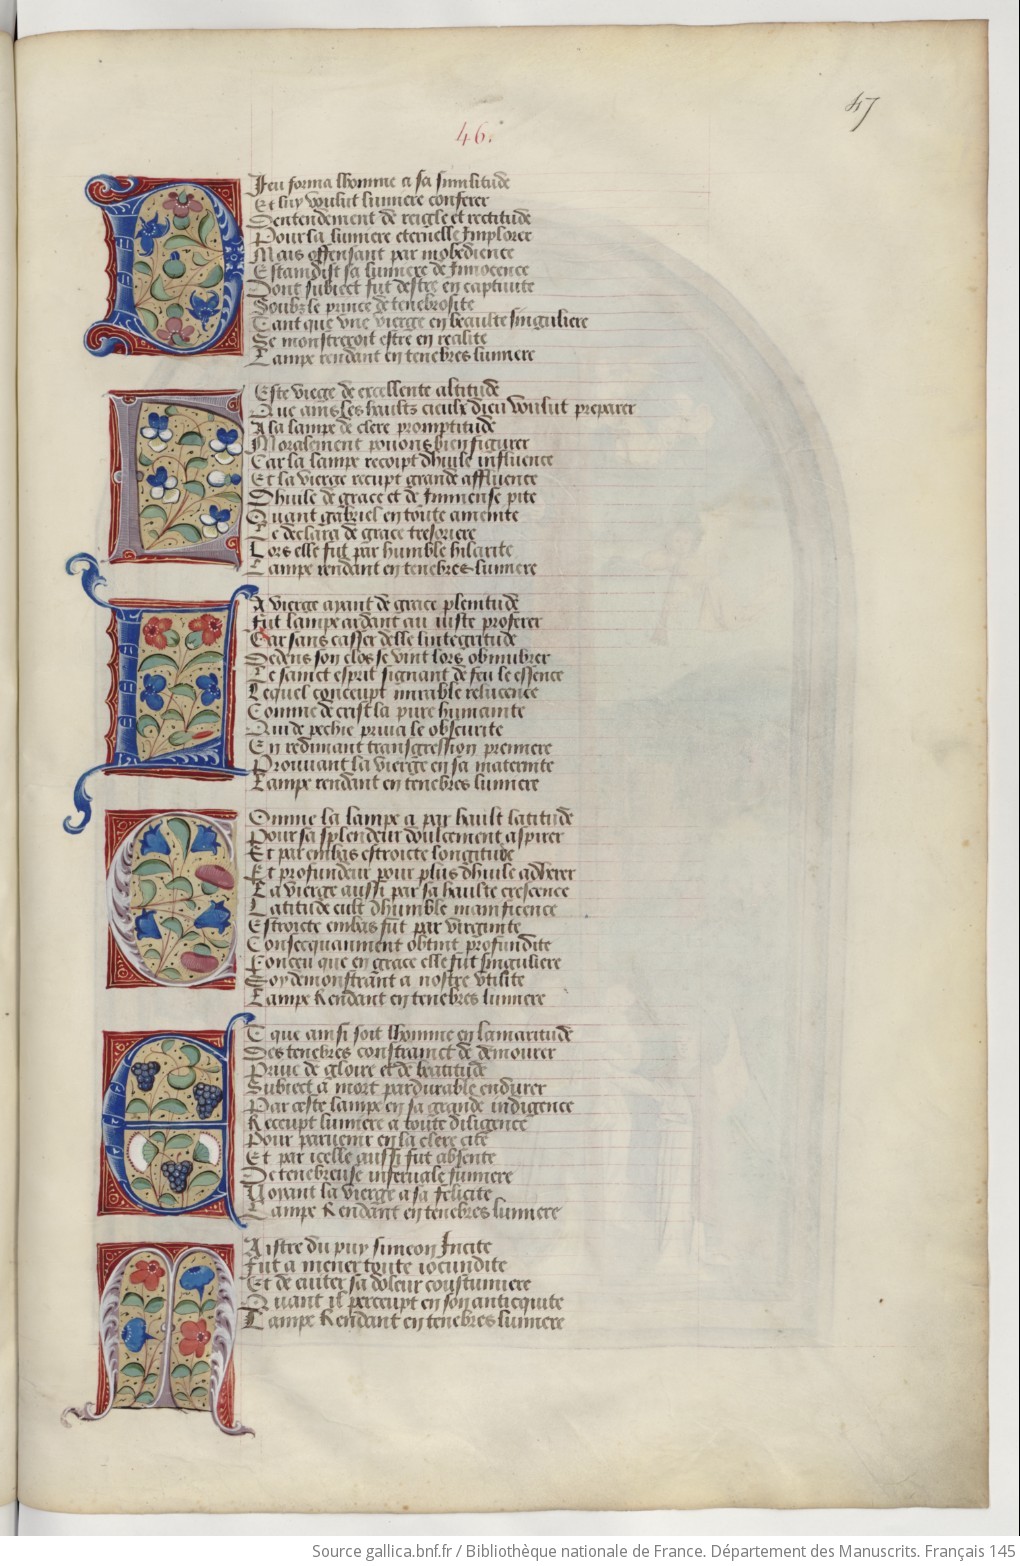 47
46.
Dieu forma lhomme a sa similitude
Et luy voulut lumiere conferer
Dentendement de reigle et rectitude
Pour la lumiere eternelle Implorer
Mais offensant par inobedience
Estaindist sa lumiere de Innocence
Dont subiect fut destre en captiuite
Soubz le prince de tenebrosite
Tant que vne vierge en beaulte singuliere
Se monstreroit estre en realite
Lampe rendant en tenebres lumiere
Ceste viege de excellente altitude
Que ains les haultz cieulx dieu voulut preparer
A la lampe de clere promptitude
Moralement pouons bien figurer
Car la lampe recoipt dhuile influence
Et la vierge recupt grande affluence
Dhuile de grace et de Immense pite
Quant gabriel en toute amenite
Le declara de grace tresoriere
Lors elle fut par humble hilarite
Lampe rendant en tenebres lumiere
La vierge ayant de grace plenitude
Fut lampe ardant au iuste proferer
Car sans casser delle lintegritude
Dedens son clos se vint lors obumbrer
Le sainct esprit signant de feu le essence
Lequel conceupt mirable relucence
Comme de crist la pure humanite
Qui de peche priua le obscurite
En redimant transgression premiere
Prouuant la vierge en sa maternite
Lampe rendant en tenebres lumiere
Comme la lampe a par hault latitude
Pour sa splendeur doulcement aspirer
Et par embas estroicte longitude
Et profundeur pour plus dhuile adherer
La vierge aussi par sa haulte crescence
Latitude eult dhumble manificence
Estroicte embas fut par virginite
Consecquanment obtint profundite
Conceu que en grace elle fut singuliere
Soy demonstrant a nostre vtilite
Lampe Rendant en tenebres lumiere
Et que ainsi soit lhomme en lamaritude
Des tenebres constrainct de demourer
Priue de gloire et de beatitude
Subiect a mort pardurable endurer
Par ceste lampe en sa grande indigence
Receupt lumiere a toute diligence
Pour paruenir en la clere cite
Et par icelle aussi fut absente
De tenebreuse infernale fumiere
Voyant la vierge a sa felicite
Lampe Rendant en tenebres lumiere
Maistre du puy simeon Incite
Fut a mener toute iocundite
Et de euiter sa doleur coustumiere
Quant il perceupt en son anticquite
Lampe Rendant en tenebres lumiere
Source gallica.bnf.fr / Bibliothèque nationale de France. Département des Manuscrits. Français 145